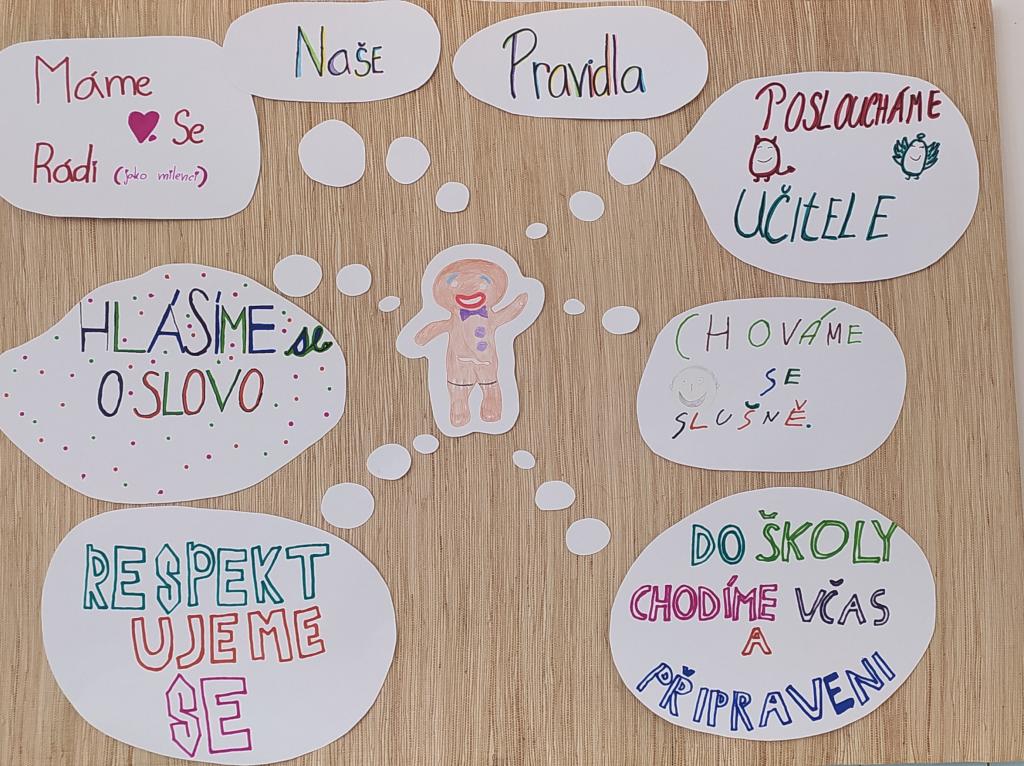 Naše
Pravidla
Máme
Se
Rádi (jako milenci)
POSLOUCHÁME
UČITELE
HLÁSÍME se
O SLOVO
CHOVÁME
SE
SLUŠNĚ.
RESPEKT
UJEME
SE
DO ŠKOLY
CHODÍME VČAS
A
PŘIPRAVENI